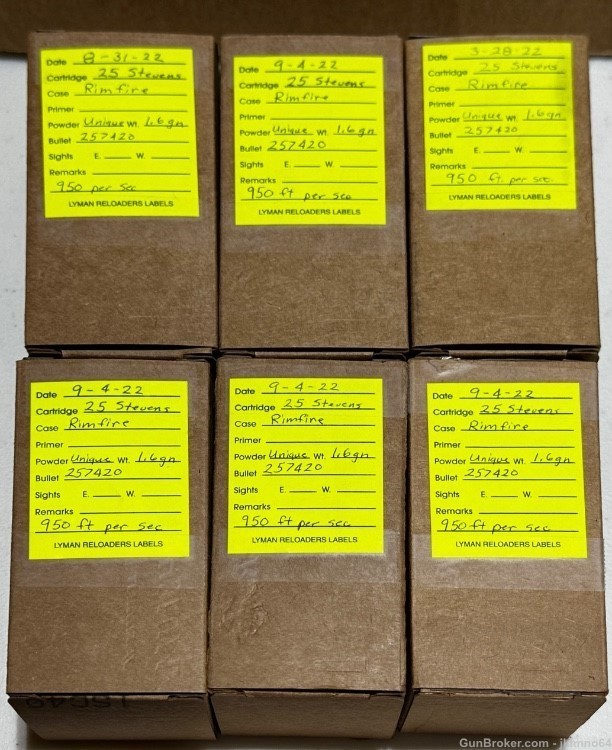 Date 8-31-22
Cartridge 25 Stevens
Case Rimfire
Primer
Powder Unique Wt. 1.6gn
Bullet 257420
Sights E. W.
Remarks
950 per sec
LYMAN RELOADERS LABELS
Date 9-4-22
Cartridge 25 Stevens
Case Rimfire
Primer
Powder Unique Wt. 1.6gn
Bullet 257420
Sights E. W.
Remarks
950 ft per sec
LYMAN RELOADERS LABELS
Date 3-28-22
Cartridge 25 Stevens
Case Rimfire
Primer
Powder Unique Wt. 1.6gn
Bullet 257420
Sights E. W.
Remarks
950 ft. per sec
LYMAN RELOADERS LABELS
Date 9-4-22
Cartridge 25 Stevens
Case Rimfire
Primer
Powder Unique Wt. 1.6gn
Bullet 257420
Sights E. W.
Remarks
950 ft per sec
LYMAN RELOADERS LABELS
Date 9-4-22
Cartridge 25 Stevens
Case Rimfire
Primer
Powder Unique Wt. 1.6gn
Bullet 257420
Sights E. W.
Remarks
950 ft per sec
LYMAN RELOADERS LABELS
Date 9-4-22
Cartridge 25 Stevens
Case Rimfire
Primer
Powder Unique Wt. 1.6gn
Bullet 257420
Sights E. W.
Remarks
950 ft per sec
LYMAN RELOADERS LABELS
GunBroker.com